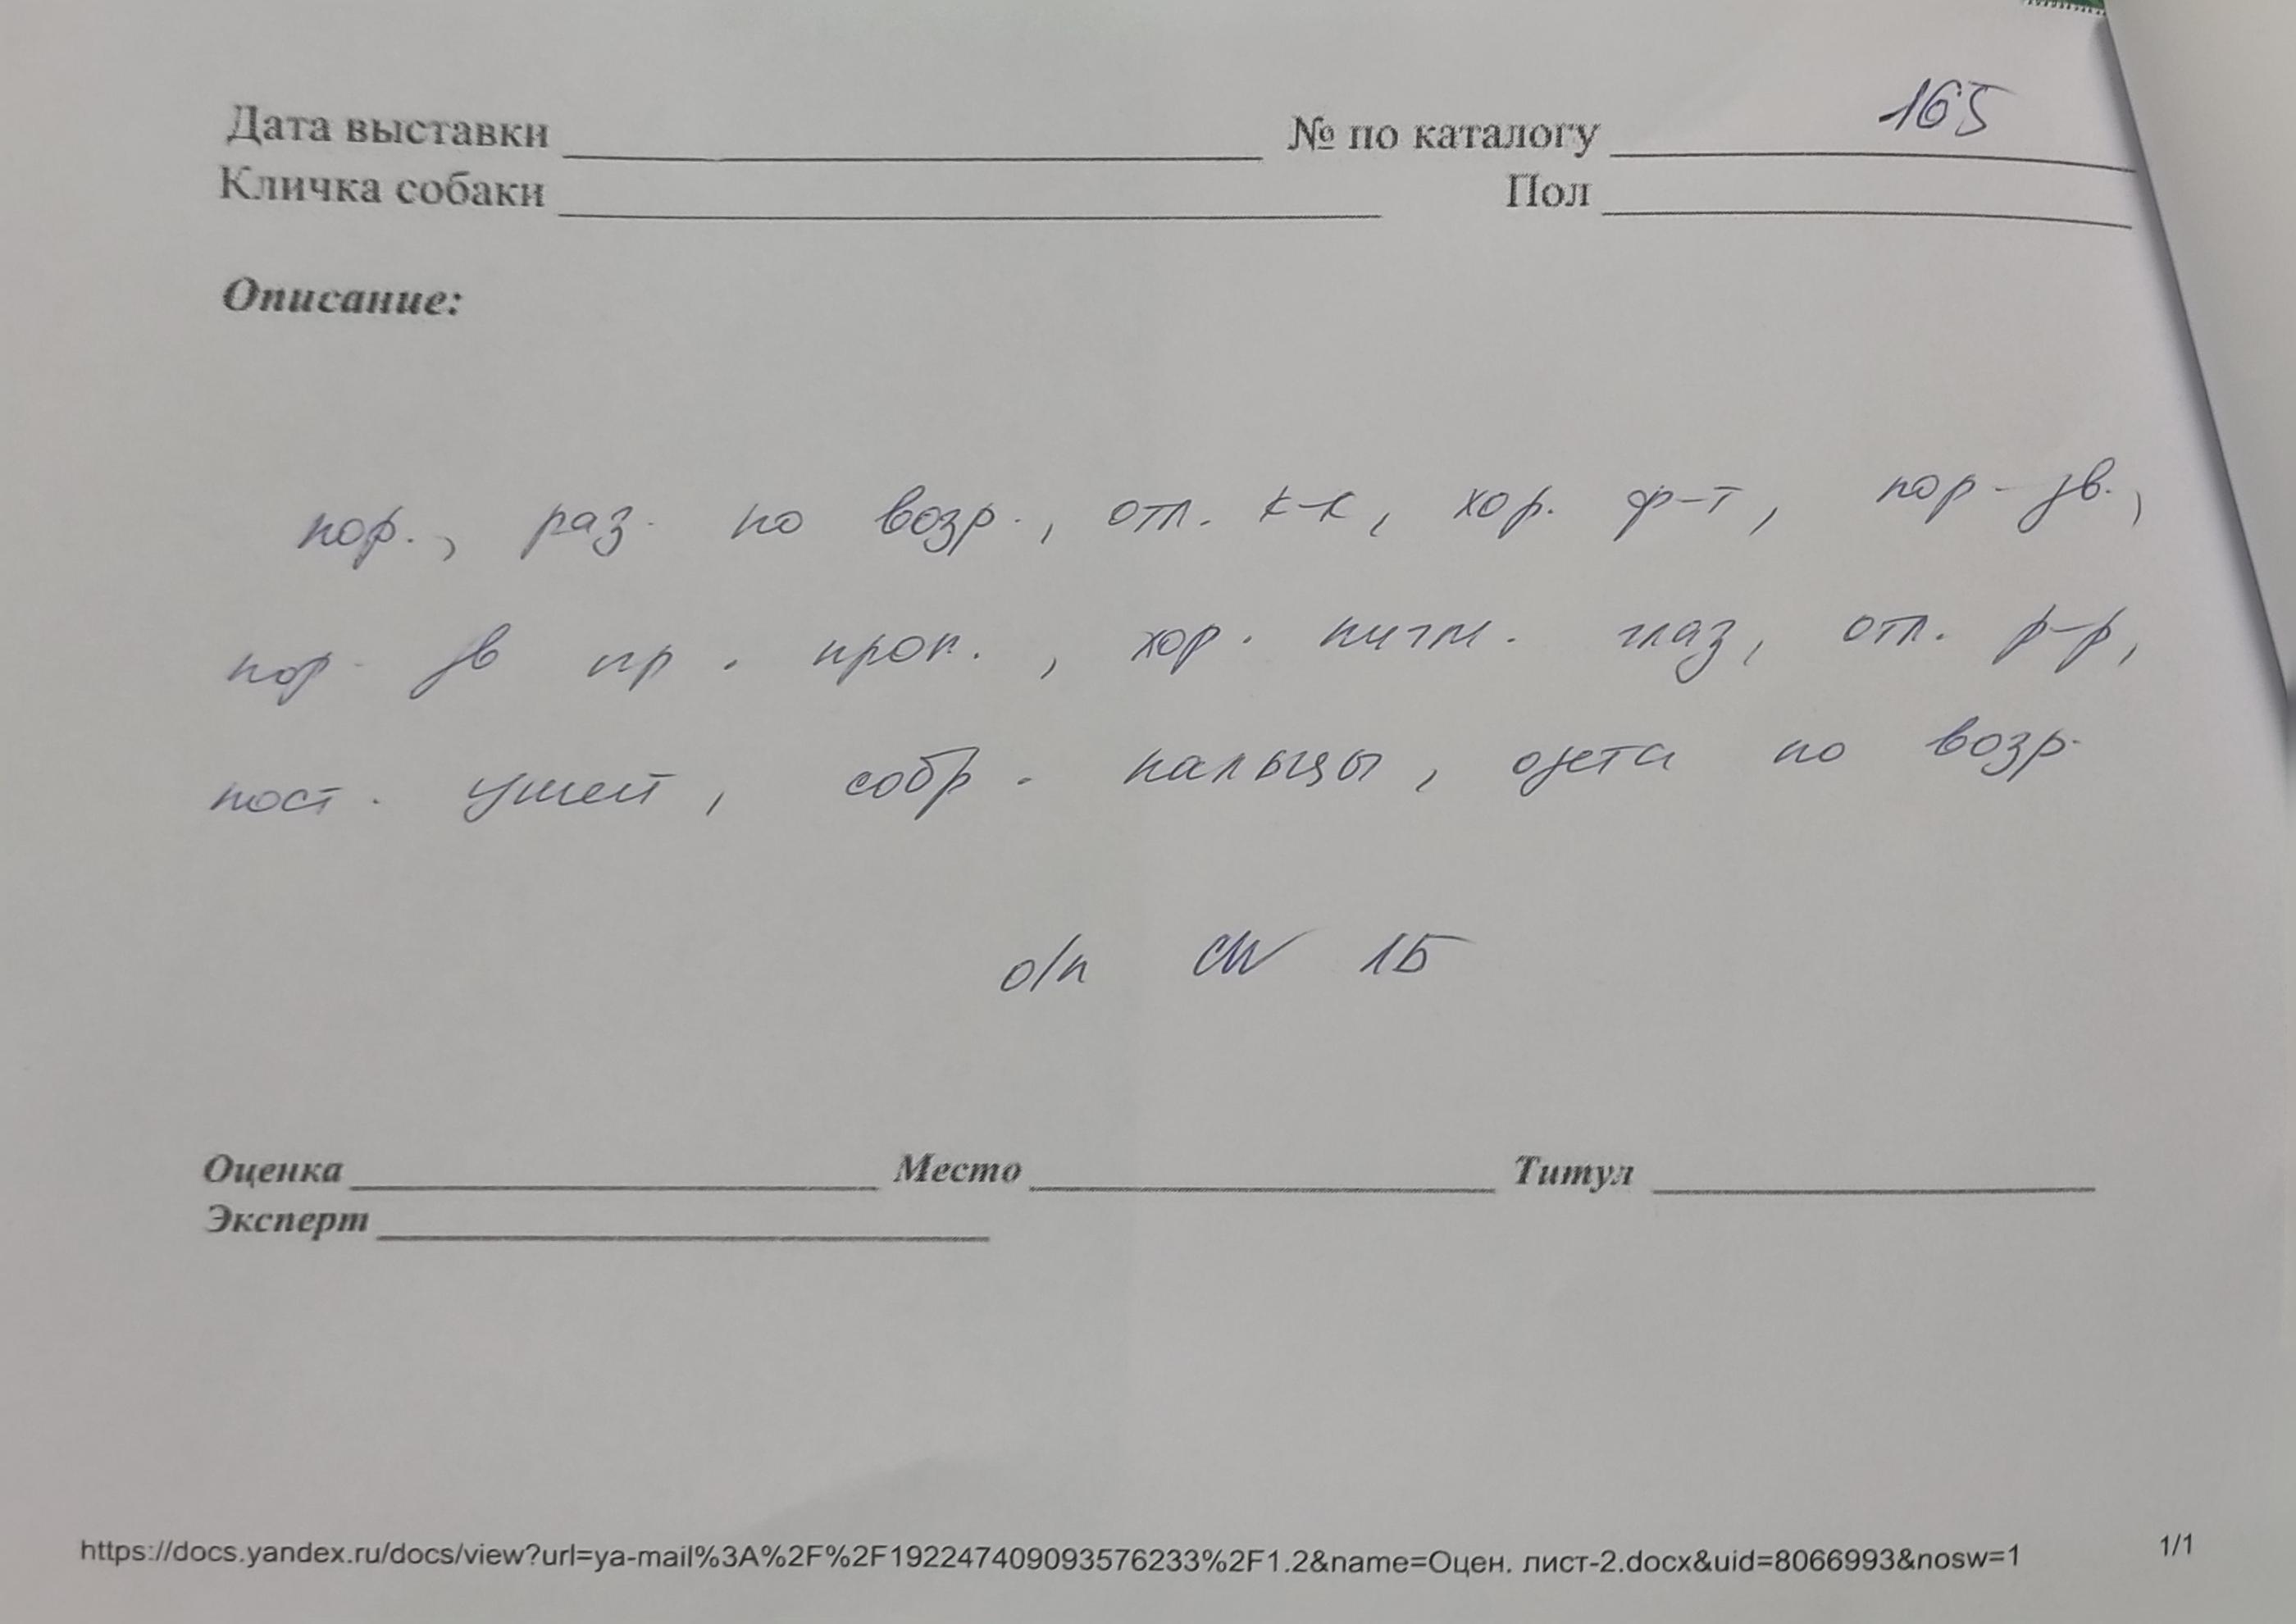 Дата выставки № по каталогу 165
Кличка собаки Пол
Описание:
пор., раз. по возр., отл. к-к, хор. ф-т, пор. зв.,
пор. зв пр. проп., хор. пигм. глаз, отл. р-р,
пост. ушей, собр. пальцы, одета по возр.
о/п CW 1Б
Оценка Место Титул
Эксперт
https://docs.yandex.ru/docs/view?url=ya-mail%3A%2F%2F192247409093576233%2F1.2&name=Оцен. лист-2.docx&uid=8066993&nosw=1 1/1